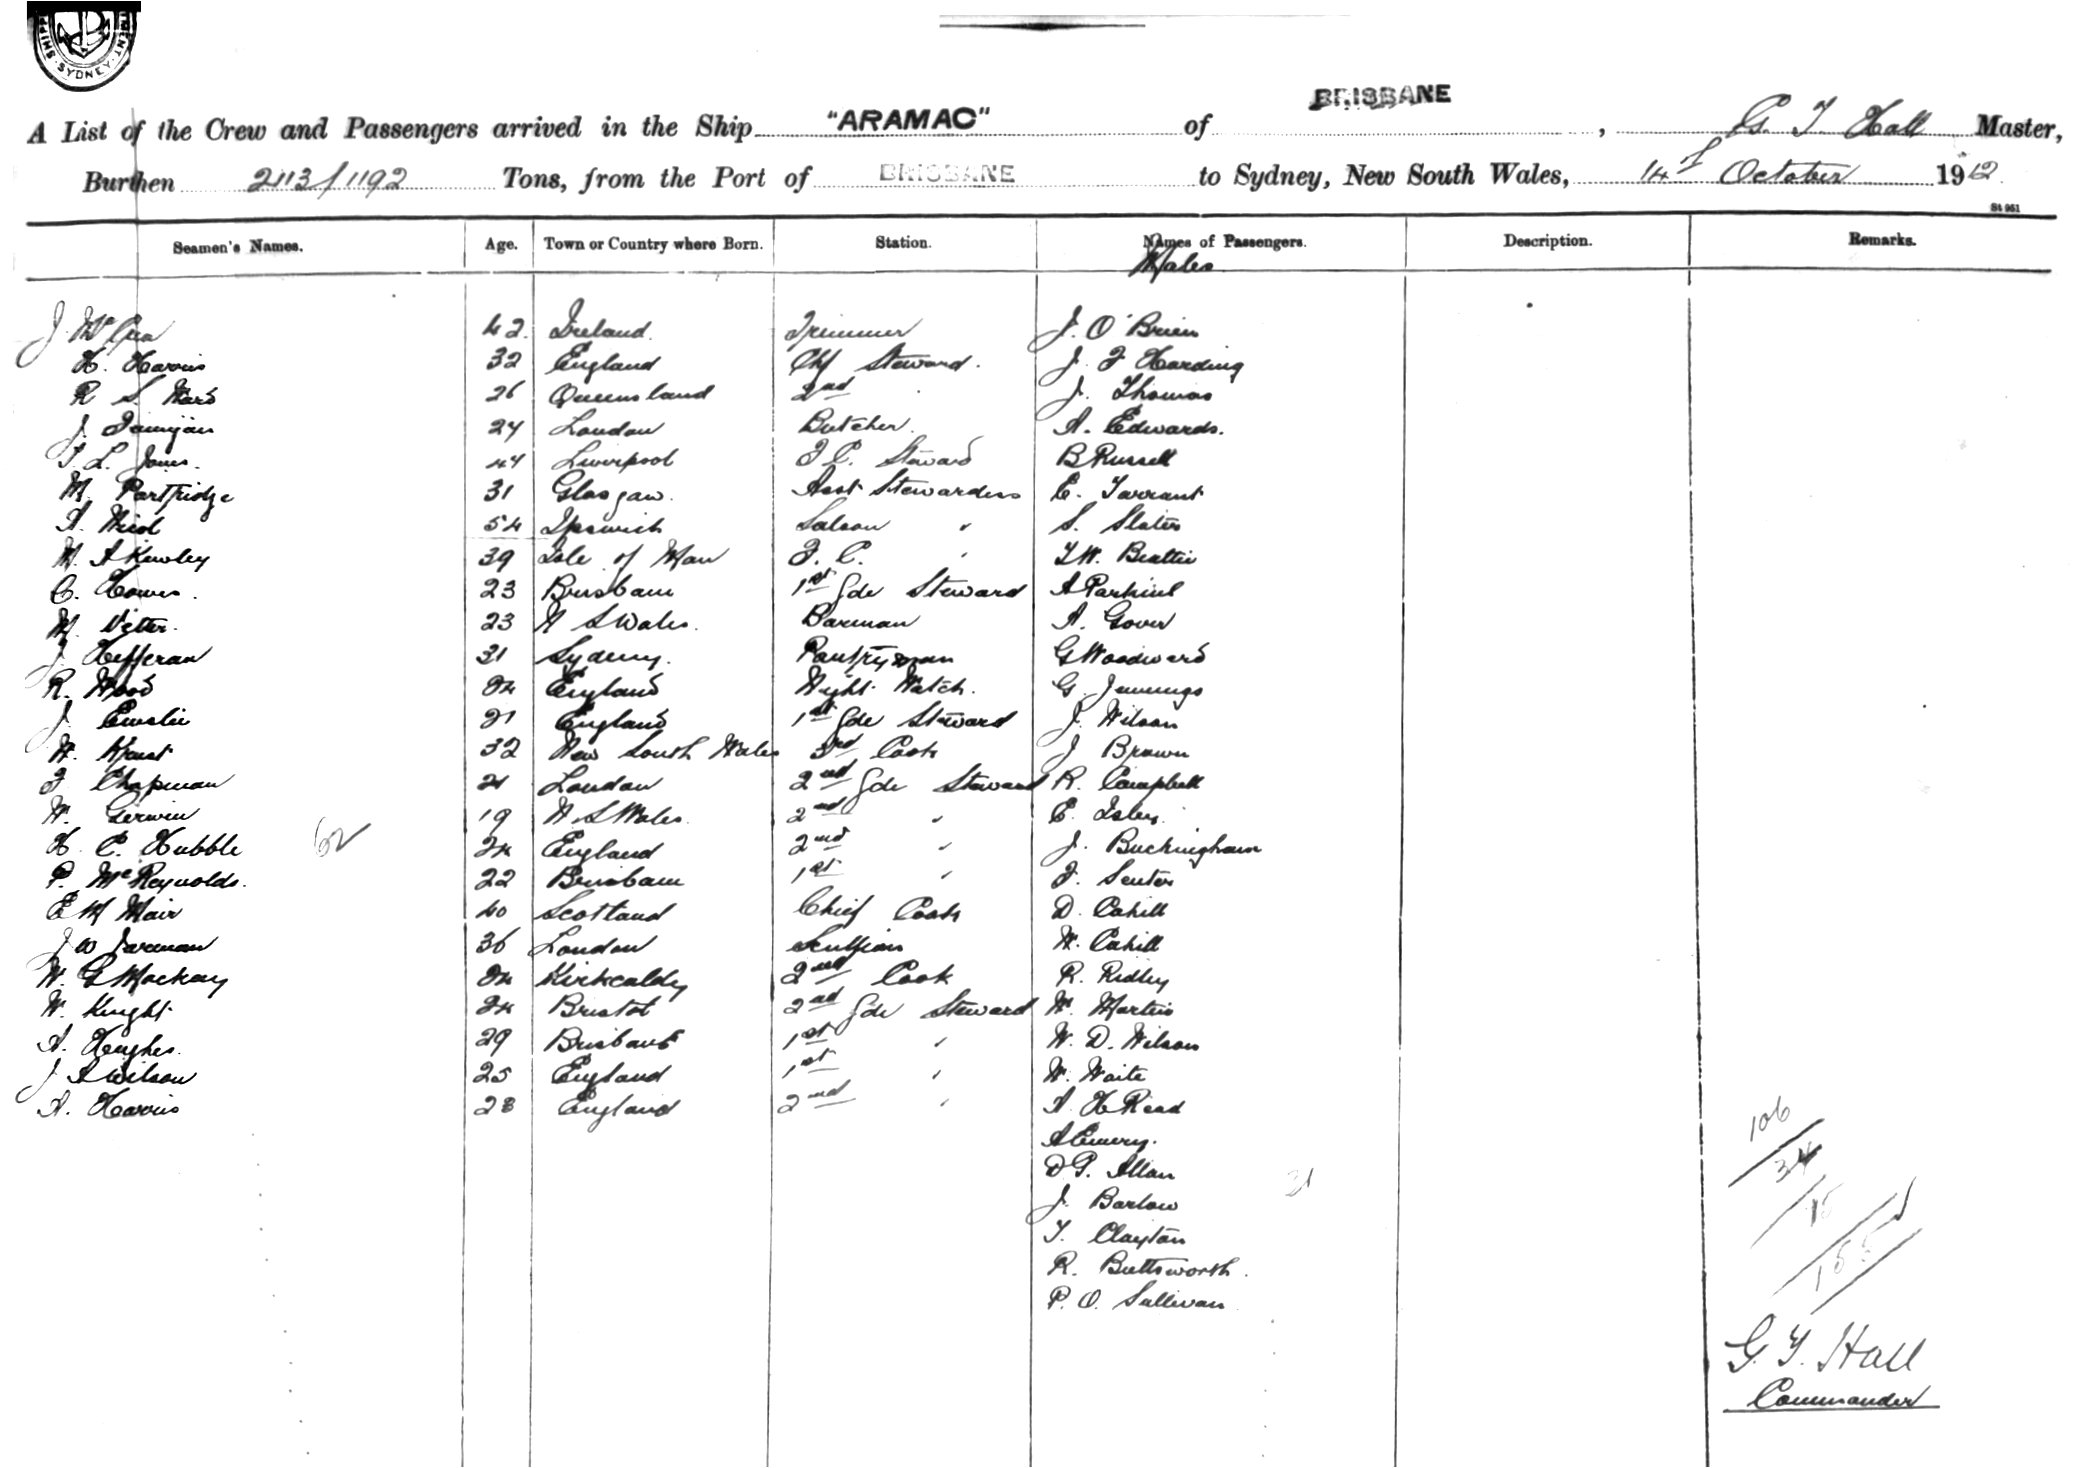 SYDNEY
A List of the Crew and Passengers arrived in the Ship "ARAMAC" of BRISBANE, G. T Hall Master,
Burthen 2113/1192 Tons, from the Port of BRISBANE to Sydney, New South Wales, 14th October 1912
St 951
Seamen's Names. Age. Town or Country where Born. Station. Names of Passengers. Description. Remarks.
Males
J. McCrea 42. Ireland. Trimmer J. O'Brien
H. Harris 32 England Chf Steward. J. F Harding
R S. Ward 26 Queensland 2nd J. Thomas
J. 24 London Butcher. A. Edwards.
T. L. Jones. 44 Liverpool F C. Steward B Russell
M. Partridge 31 Glasgow. Asst Stewardess E. Tarrant
A. Nicol 54 Ipswich Saloon " S. Slater
M. A Kewley 39 Isle of Man F. C. " T. W. Beattie
C. Howes. 23 Brisbane 1st Gde Steward A
M. Vetter. 23 N S Wales. Barman A. Gover
J. Hefferan 31 Sydney. Pantryman G Woodward
R. Wood 24 England Night Watch. G. Jennings
J. Emslie 21 England 1st Gde Steward J. Wilson
W. 32 New South Wales 3rd Cook J Brown
F Chapman 21 London 2nd Gde Steward R. Campbell
W. Gerwin 19 N. S Wales. 2nd " E. Isles.
H. C. Hubble 62 24 England 2nd " J. Buckingham
P. McReynolds. 22 Brisbane 1st " F. Senter
E M Mair 40 Scotland Chief Cook D. Cahill
J W Jarman 36 London Scullion W. Cahill
W. G Mackay 24 Kirkcaldy 2nd Cook R. Ridley
W. Knight. 24 Bristol 2nd Gde Steward W. Martin
A. Hughes. 29 Brisbane 1st " W. D. Wilson
J. A Wilson 25 England 1st " W. Waite
A. Harris 28 England 2nd " A. H Read
A Emery.
D P. Allan 31
J. Barlow
T. Clayton
R. Buttsworth.
P. O. Sullivan
106
34
15
155
G. T. Hall
Commander